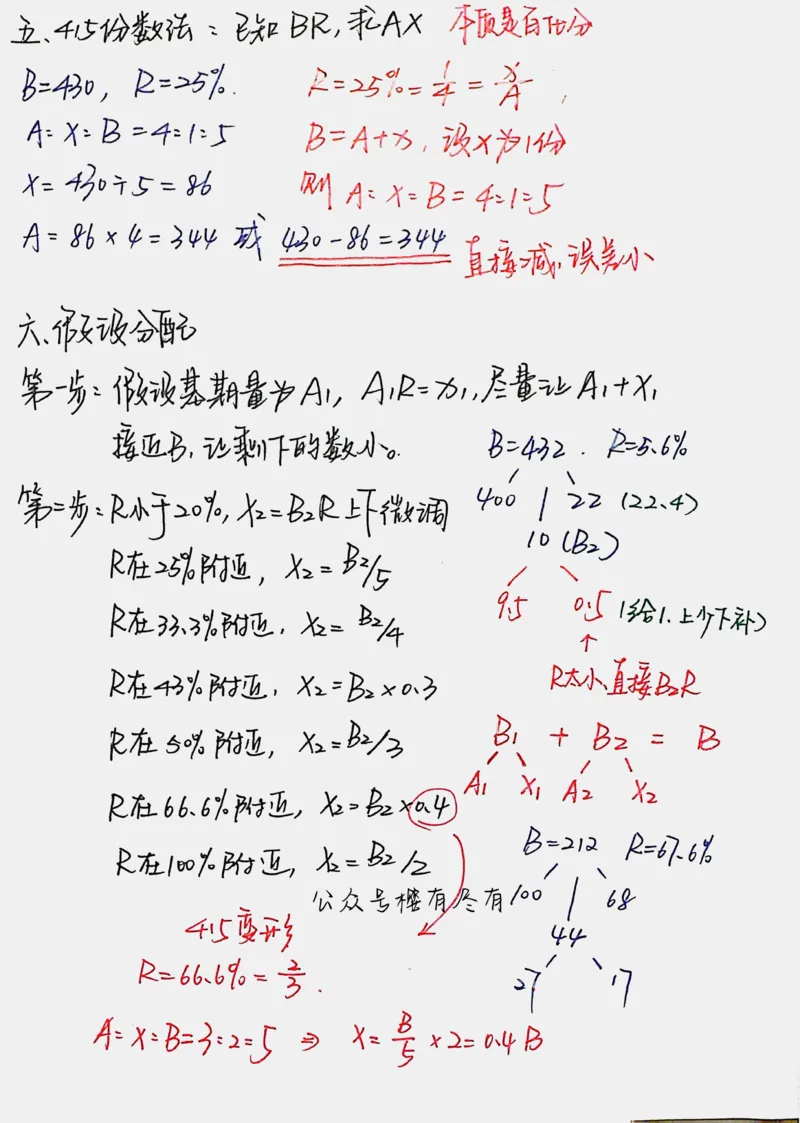 五、415份数法：已知BR,求AX 本质是百化分
B=430, R=25%. R=25%=1/4=x/A,
A:X:B=4:1:5 B=A+x,设x为1份
X=430÷5=86 则 A:X:B=4:1:5
A=86×4=344 或 430-86=344 直接减,误差小
六、假设分配
第一步:假设基期量为A₁, A₁R=x₁,尽量让A₁+X₁
接近B,让剩下的数小。 B=432. R=5.6%
400 22 (22.4)
第二步:R小于20%, X₂=B₂R上下微调
10(B₂)
R在25%附近, X₂=B₂/5
9.5 0.5 (多给1.上少下补)
R在33.3%附近, X₂=B₂/4
↑
R太小,直接B₂R
R在43%附近, X₂=B₂×0.3
R在50%附近, X₂=B₂/3
B₁ + B₂ = B
A₁ X₁ A₂ X₂
R在66.6%附近, X₂=B₂×0.4
B=212 R=67.6%
R在100%附近, X₂=B₂/2
100 68
公众号楼有尽有
44
415变形
27 17
R=66.6%=2/3.
A:X:B=3:2:5 ⇒ X=B/5×2=0.4B